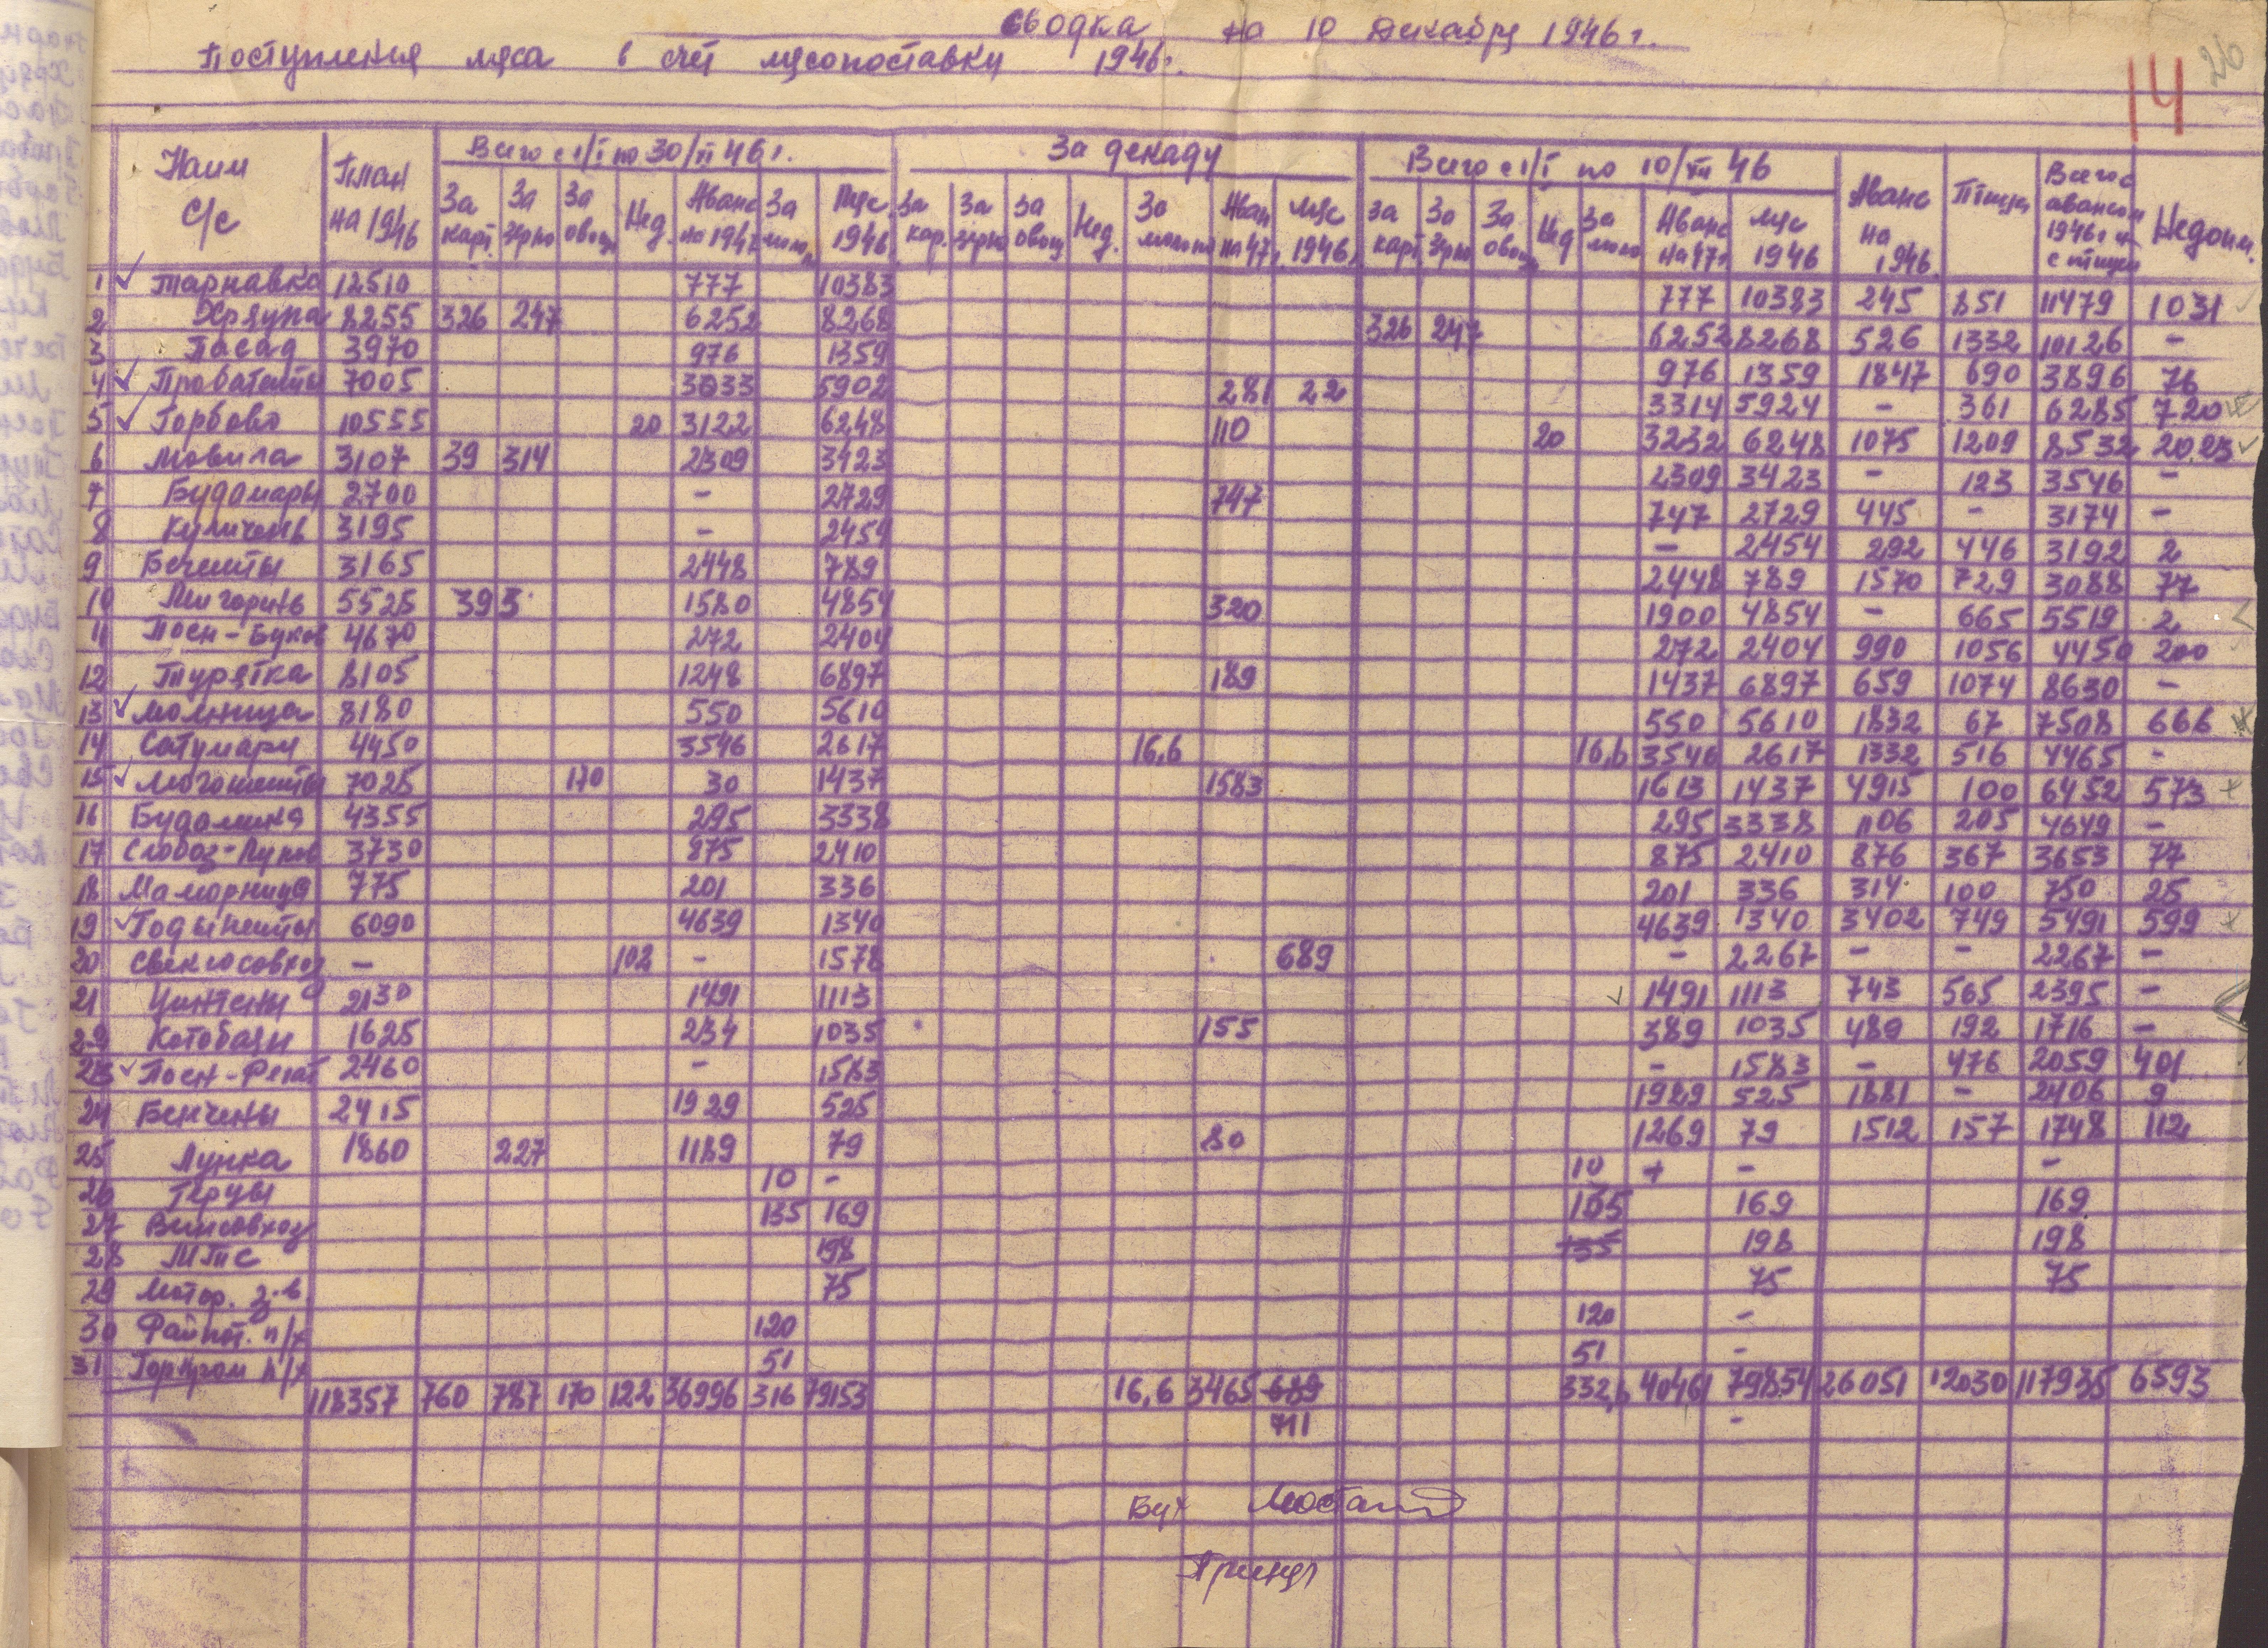 сводка на 10 декабря 1946 г.
Поступления мяса в счет мясопоставки 1946 г.
14 26
Наим С/С План на 1946 Всего с 1/I по 30/XI 46 г. За декаду Всего с 1/I по 10/XII 46 Аванс на 1946 Птица Всего с авансом 1946 г и с птицей Недоим.
За карт За зерно За овощ Нед. Аванс на 1947 За молок. Мяс 1946 За кар. За зерно За овощ Нед. За молоко Аван на 47 г. Мяс 1946 За карт За зерно За овощ Нед За молоко Аванс на 47 г Мяс 1946
1 ✓ Тарнавка 12510 777 10383 777 10383 245 851 11479 1031
2 Хряцка 8255 326 247 6252 8268 326 247 6252 8268 526 1332 10126 -
3 Посад 3970 976 1359 976 1359 1847 690 3896 76
4 ✓ Пробатешты 7005 3033 5902 281 22 3314 5924 - 361 6285 720
5 ✓ Горбово 10555 20 3122 6248 110 20 3232 6248 1075 1209 8532 20,23
6 Мовила 3107 39 314 2309 3423 2309 3423 - 123 3546 -
7 Будамары 2700 - 2729 747 747 2729 445 - 3174 -
8 Куличень 3195 - 2454 - 2454 292 446 3192 2
9 Бечешты 3165 2448 789 2448 789 1570 729 3088 77
10 Мигорень 5525 393 1580 4854 320 1900 4854 - 665 5519 2
11 Поен-Буков 4670 272 2404 272 2404 990 1056 4450 200
12 Турятка 8105 1248 6897 189 1437 6897 659 1074 8630 -
13 ✓ Молница 8180 550 5610 550 5610 1832 67 7508 666
14 Сатумари 4450 3546 2617 16,6 16,6 3546 2617 1332 516 4465 -
15 ✓ Могошешты 7025 170 30 1437 1583 1613 1437 4915 100 6452 573
16 Будолика 4355 295 3338 295 3338 1106 205 4649 -
17 Слобоз- 3730 875 2410 875 2410 876 367 3653 77
18 Маморница 775 201 336 201 336 314 100 750 25
19 ✓ Годынешты 6090 4639 1340 4639 1340 3402 749 5491 599
20 Свеклосовхоз - 102 - 1578 689 - 2267 - - 2267 -
21 Цинтены 2130 1491 1113 ✓ 1491 1113 743 565 2395 -
22 Котобаян 1625 234 1035 155 389 1035 489 192 1716 -
23 ✓ Поен- 2460 - 1583 - 1583 - 476 2059 401
24 Бенчены 2415 1929 525 1929 525 1881 - 2406 9
25 Лунка 1860 227 1189 79 80 1269 79 1512 157 1748 112
26 Герцы 10 - 10 + - -
27 Винсовхоз 135 169 135 169 169
28 МТС 198 135 198 198
29 Мотор. 75 75 75
30 Райпот. п/х 120 120 -
31 Горпром п/х 51 51 -
118357 760 787 170 122 36996 316 79153 16,6 3465 689 332,6 40461 79854 26051 12030 117935 6593
711 -
Бух